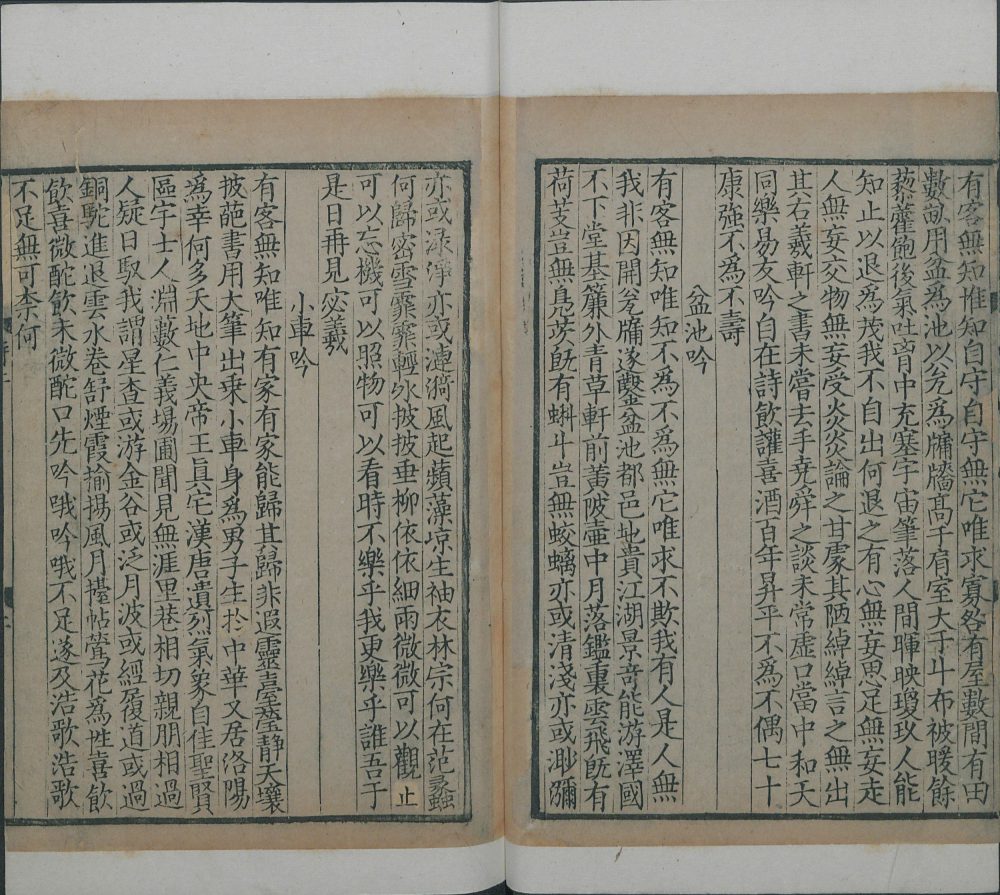 有客無知惟知自守自守無它唯求寡咎有屋數間有田
數畝用盆為池以瓮為牖牆髙于肩室大于斗布被暖餘
藜藿飽後氣吐胷中充塞宇宙筆落人間暉映瓊玖人能
知止以退為茂我不自出何退之有心無妄思足無妄走
人無妄交物無妄受炎炎論之甘處其陋綽綽言之無出
其右羲軒之書未甞去手堯舜之談未常虚口當中和天
同樂易友吟自在詩飲讙喜酒百年昇平不為不偶七十
康强不為不壽
盆池吟
有客無知唯知不為不為無它唯求不欺我有人是人無
我非因開瓮牖遂鑿盆池都邑地貴江湖景竒能游澤國
不下堂基簾外青草軒前黄陂壷中月落鑑裏雲飛旣有
荷芰豈無鳧茨旣有蝌斗豈無蛟螭亦或清淺亦或渺瀰
亦或渌淨亦或漣漪風起蘋藻凉生袖衣林宗何在范蠡
何歸密雪霏霏輕氷披披垂柳依依細雨微微可以觀止
可以忘機可以照物可以看時不樂乎我更樂乎誰吾于
是日再見宓羲
小車吟
有客無知唯知有家有家能歸其歸非遐靈臺瑩静天壤
披葩書用大筆出乗小車身為男子生扵中華又居洛陽
為幸何多天地中央帝王眞宅漢唐遺烈氣象自佳聖賢
區宇士人淵藪仁義塲圃聞見無涯里巷相切親朋相過
人疑日馭我謂星查或游金谷或泛月波或經履道或過
銅駝進退雲水卷舒煙霞揄揚風月擡帖鸎花為性喜飲
飲喜微酡飲未微酡口先吟哦吟哦不足遂及浩歌浩歌
不足無可柰何